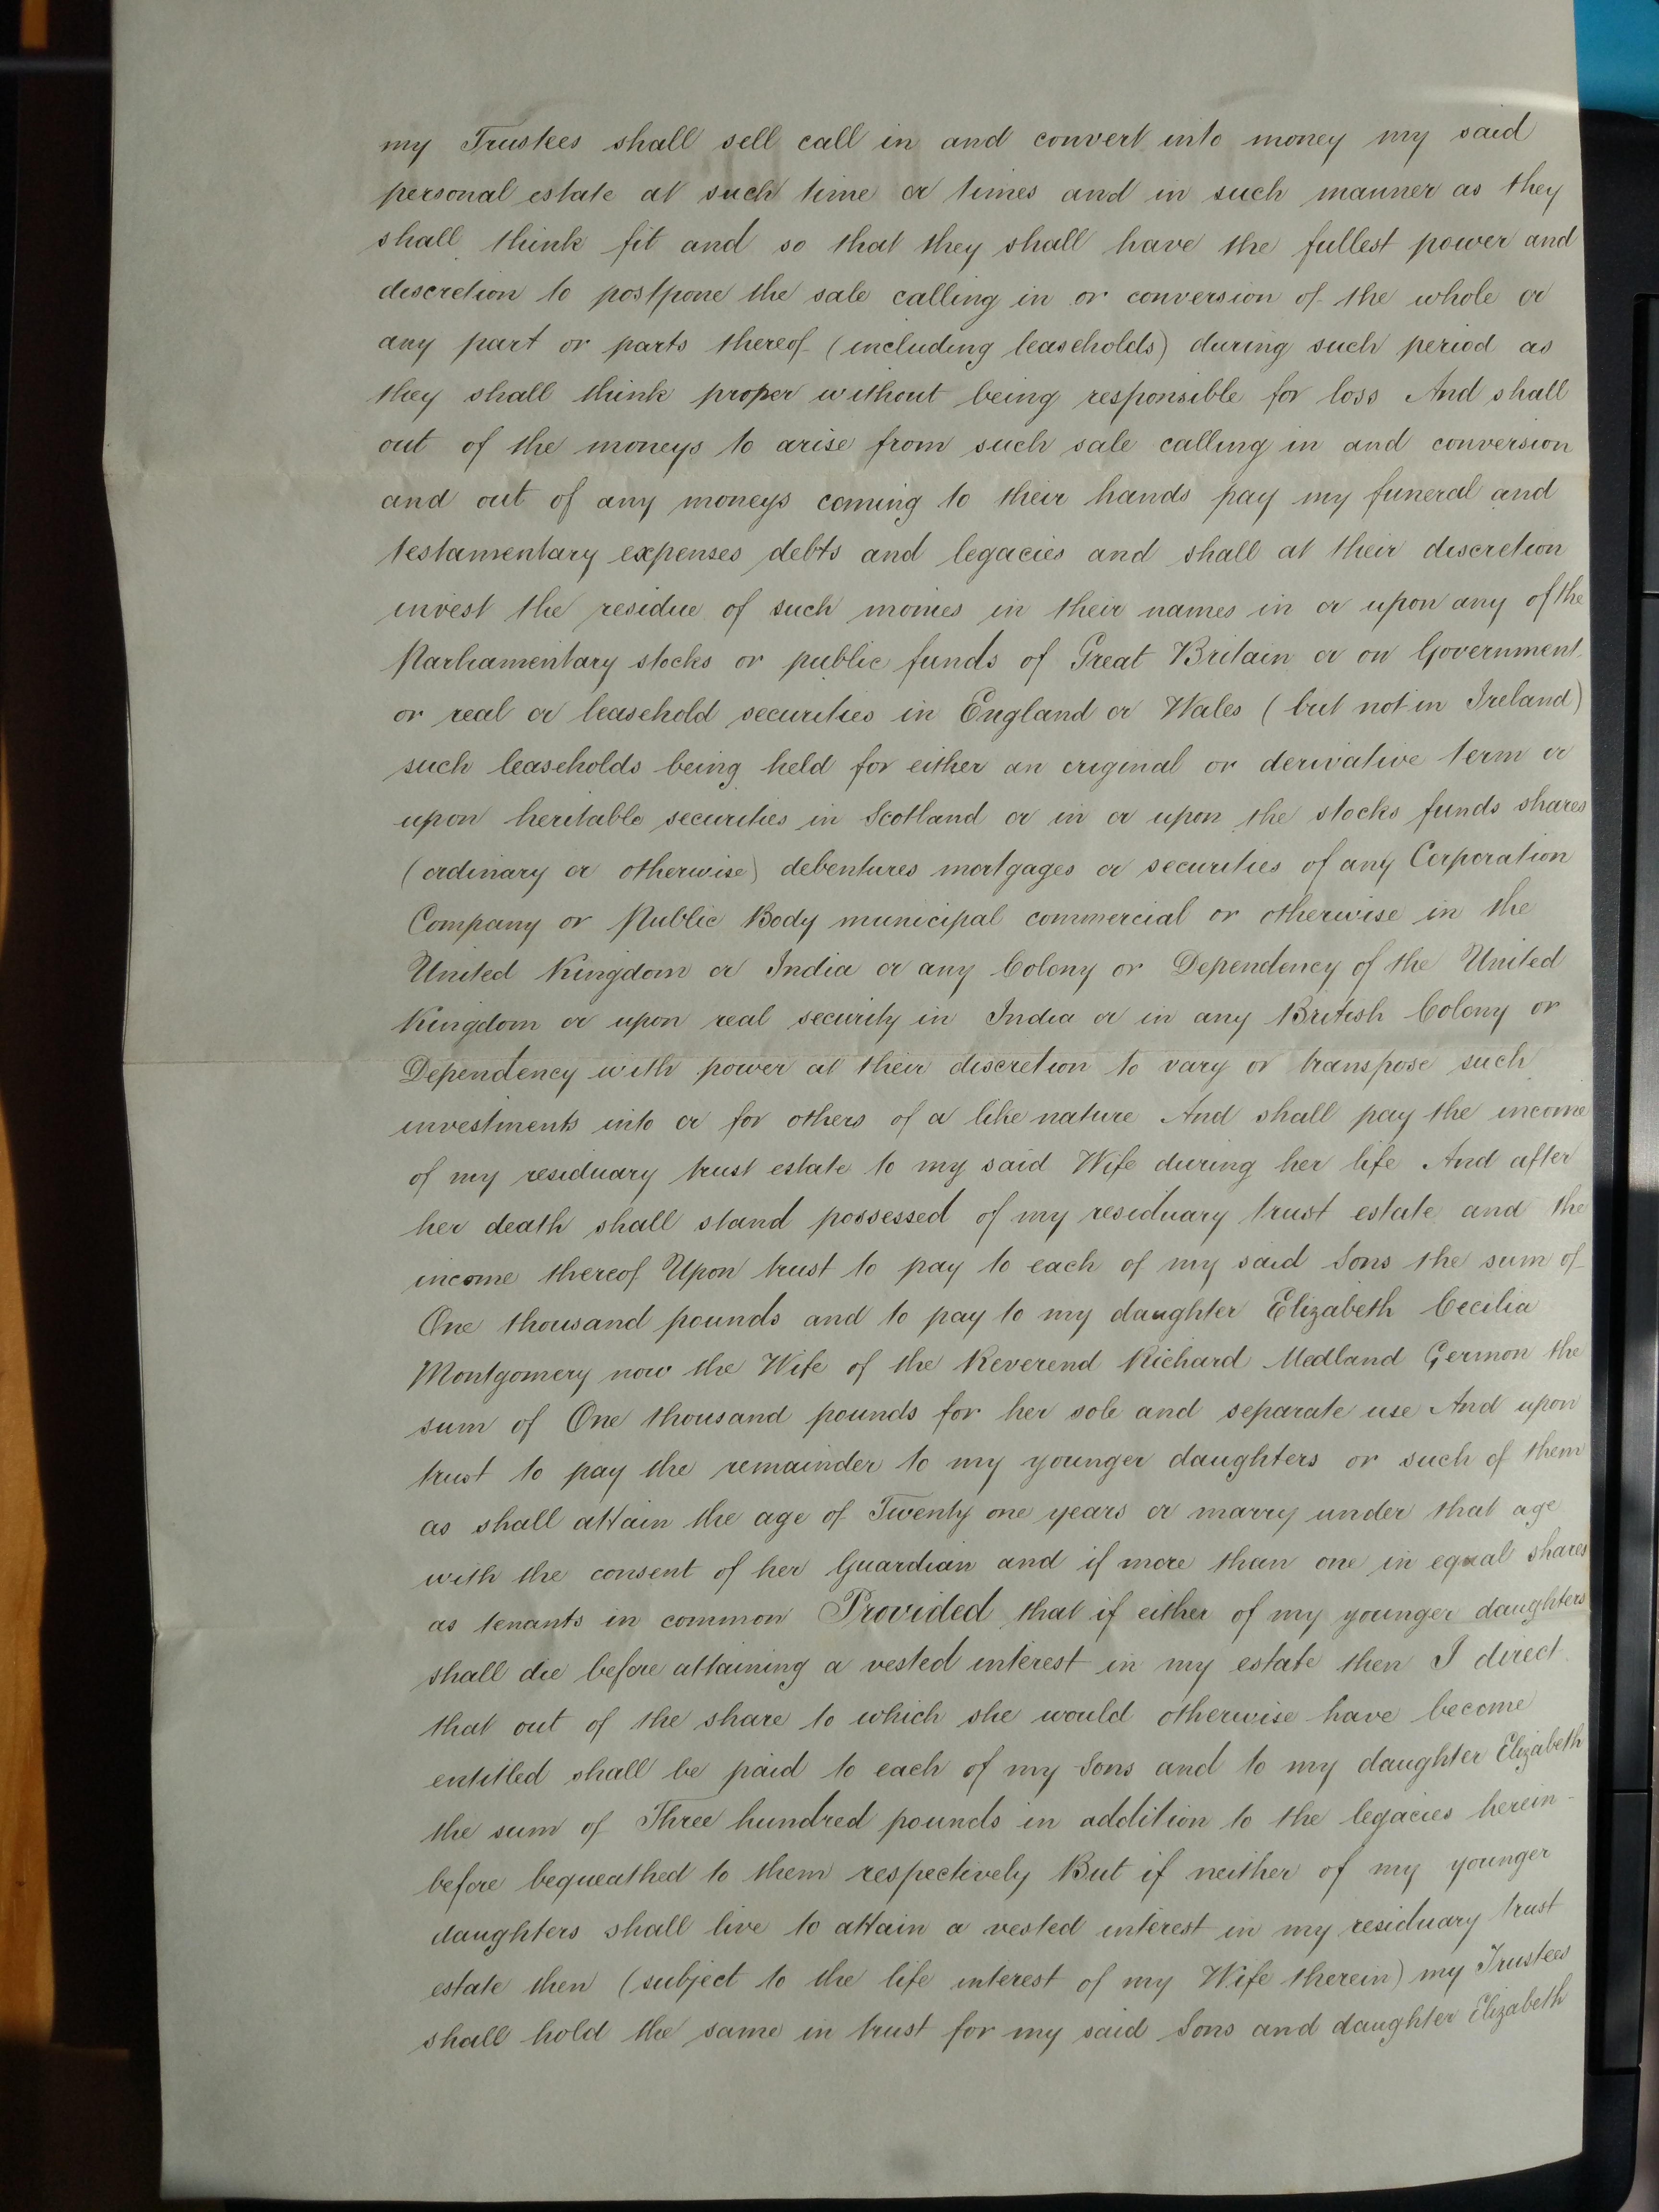 my Trustees shall sell call in and convert into money my said
personal estate at such time or times and in such manner as they
shall think fit and so that they shall have the fullest power and
discretion to postpone the sale calling in or conversion of the whole or
any part or parts thereof (including leaseholds) during such period as
they shall think proper without being responsible for loss And shall
out of the moneys to arise from such sale calling in and conversion
and out of any moneys coming to their hands pay my funeral and
testamentary expenses debts and legacies and shall at their discretion
invest the residue of such monies in their names in or upon any of the
Parliamentary stocks or public funds of Great Britain or on Government
or real or leasehold securities in England or Wales (but not in Ireland)
such leaseholds being held for either an original or derivative term or
upon heritable securities in Scotland or in or upon the stocks funds shares
(ordinary or otherwise) debentures mortgages or securities of any Corporation
Company or Public Body municipal commercial or otherwise in the
United Kingdom or India or any Colony or Dependency of the United
Kingdom or upon real security in India or in any British Colony or
Dependency with power at their discretion to vary or transpose such
investments into or for others of a like nature And shall pay the income
of my residuary trust estate to my said Wife during her life And after
her death shall stand possessed of my residuary trust estate and the
income thereof Upon trust to pay to each of my said Sons the sum of
One thousand pounds and to pay to my daughter Elizabeth Cecilia
Montgomery now the Wife of the Reverend Richard Medland Germon the
sum of One thousand pounds for her sole and separate use And upon
trust to pay the remainder to my younger daughters or such of them
as shall attain the age of Twenty one years or marry under that age
with the consent of her Guardian and if more than one in equal shares
as tenants in common Provided that if either of my younger daughters
shall die before attaining a vested interest in my estate then I direct
that out of the share to which she would otherwise have become
entitled shall be paid to each of my Sons and to my daughter Elizabeth
the sum of Three hundred pounds in addition to the legacies herein-
before bequeathed to them respectively But if neither of my younger
daughters shall live to attain a vested interest in my residuary trust
estate then (subject to the life interest of my Wife therein) my Trustees
shall hold the same in trust for my said Sons and daughter Elizabeth